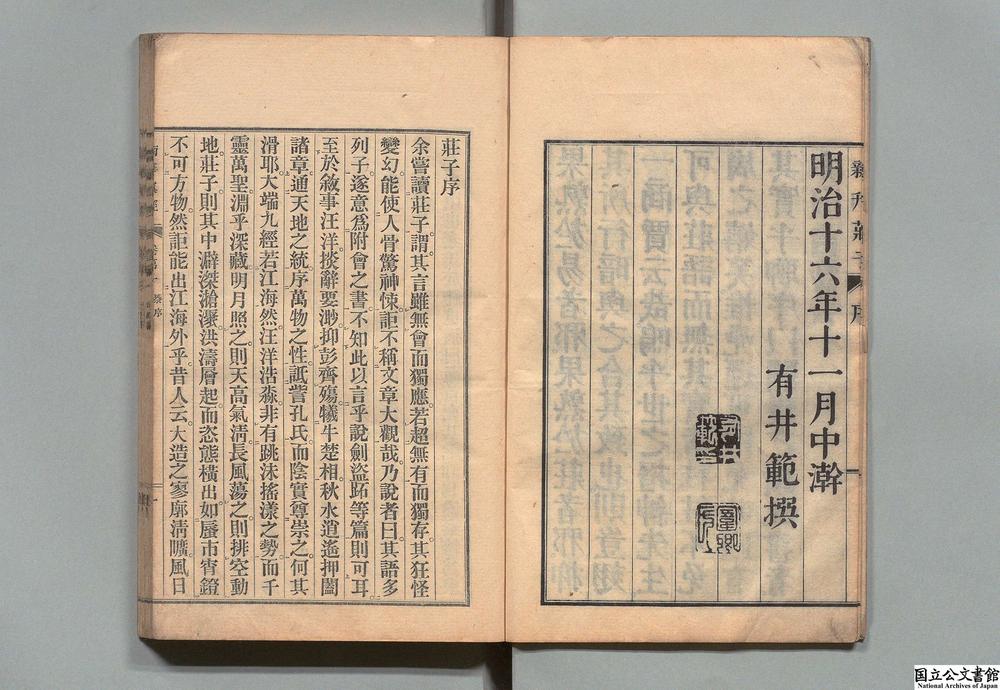 明治十六年十一月中澣
有井範撰
莊子序
余嘗讀莊子謂其言雖無會而獨應若超無有而獨存其狂怪
變幻能使人骨驚神悚詎不稱文章大觀哉乃說者曰其語多
列子逐意爲附會之書不知此以言乎說劍盜跖等篇則可耳
至於敘事汪洋掞辭要渺抑彭齊殤犧牛楚相秋水逍遙押闔
諸章通天地之統序萬物之性詆訾孔氏而陰實尊崇之何其
滑耶大端九經若江海然汪洋浩淼非有跳沫搖漾之勢而千
靈萬聖淵乎深藏明月照之則天高氣淸長風蕩之則排空動
地莊子則其中澼深滄瀑洪濤層起而恣態橫出如蜃市宵鐙
不可方物然詎能出江海外乎昔人云大造之寥廓淸曠風日
序
国立公文書館
National Archives of Japan